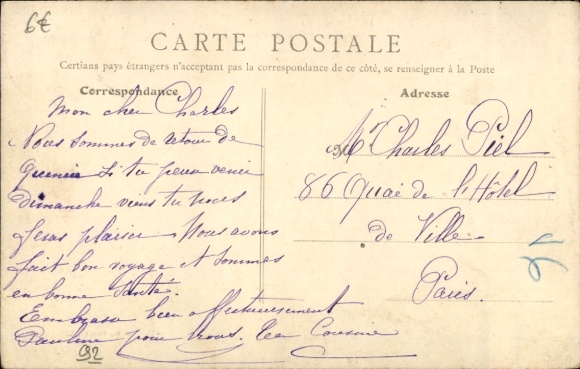 6€
CARTE POSTALE
Certians pays étrangers n'acceptant pas la correspondance de ce côté, se renseigner à la Poste
Correspondance
Mon cher Charles
Nous sommes de retour de
si tu peux venir
dimanche viens tu nous
feras plaisir Nous avons
fait bon voyage et sommes
en bonne Santé.
Embrasse bien affectueusement
Pauline pour nous. Ton Cousin
92
Adresse
Mr Charles Piel
86 Quai de l'Hôtel
de Ville
Paris.